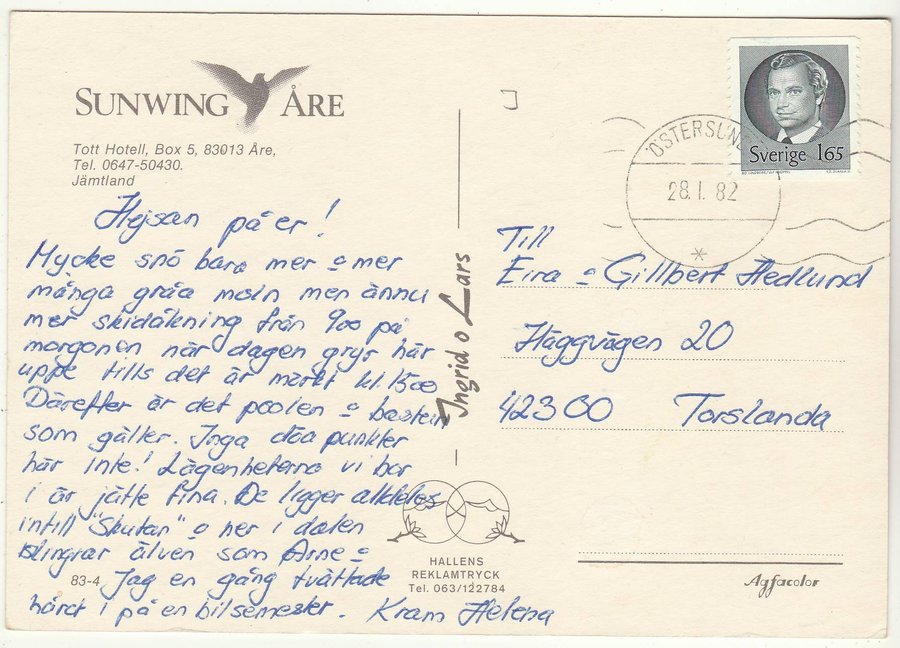 SUNWING ÅRE
Tott Hotell, Box 5, 83013 Åre,
Tel. 0647-50430.
Jämtland
Hejsan på er!
Mycke snö bara mer o mer
många gråa moln men ännu
mer skidåkning från 900 på
morgonen när dagen gryr här
uppe tills det är mörkt kl. 1500
Därefter är det poolen o bastun
som gäller. Inga döa punkter
här inte! Lägenheterna vi bor
i är jätte fina. De ligger alldeles
intill "Skutan" o ner i dalen
slingrar älven som Arne o
Jag en gång tvättade
håret i på en bilsemester. Kram Helena
83-4
Ingrid o Lars
HALLENS
REKLAMTRYCK
Tel. 063/122784
ÖSTERSUND
28.1.82
Sverige 165
Till
Eira o Gillbert Hedlund
Häggvägen 20
42300 Torslanda
Agfacolor